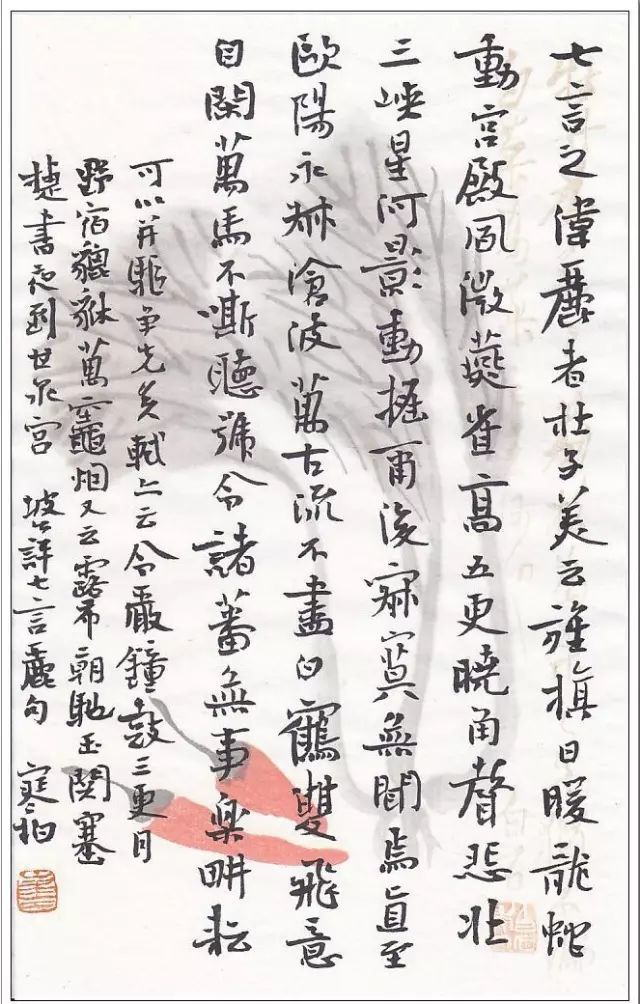 七言之偉麗者杜子美云旌旗日暖龍蛇
動宮殿風微燕雀高五更曉角聲悲壯
三峽星河影動搖爾後寂寞無聞焉直至
歐陽永叔滄波萬古流不盡白鶴雙飛意
自閑萬馬不嘶聽號令諸蕃無事樂耕耘
可以并驅爭先矣軾亦云令嚴鐘鼓三更月
野宿貔貅萬竈烟又云露布朝馳玉關塞
捷書夜到甘泉宮 坡公評七言麗句 寒柏